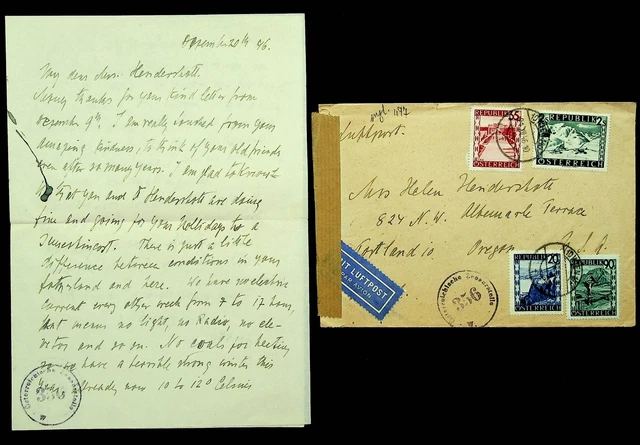 December 20th 46.
My dear Mrs. Hendershott.
Many thanks for your kind letter from
December 9th. I am really touched from your
amazing kindness, to think of your old friends
even after so many years. I am glad to know
that you and Hendershott are doing
fine and going for your Hollidays to a
. There is just a little
difference between conditions in your
and here. We have no electric
current every other week from 7 to 17 hours,
that means no light, no Radio, no ele-
vator and so on. No coals for heating
we have a terrible strong winter this
already now 10 to 12° Celsius
Österreichische Zensurstelle
336
Luftpost.
Mrs Helen Hendershott
824 N.W. Albemarle Terrace
Portland 10, Oregon U.S.A.
MIT LUFTPOST
PAR AVION
Österreichische Zensurstelle
336
REPUBLIK
ÖSTERREICH
REPUBLIK 2
ÖSTERREICH
REPUBLIK 20
ÖSTERREICH
REPUBLIK
ÖSTERREICH